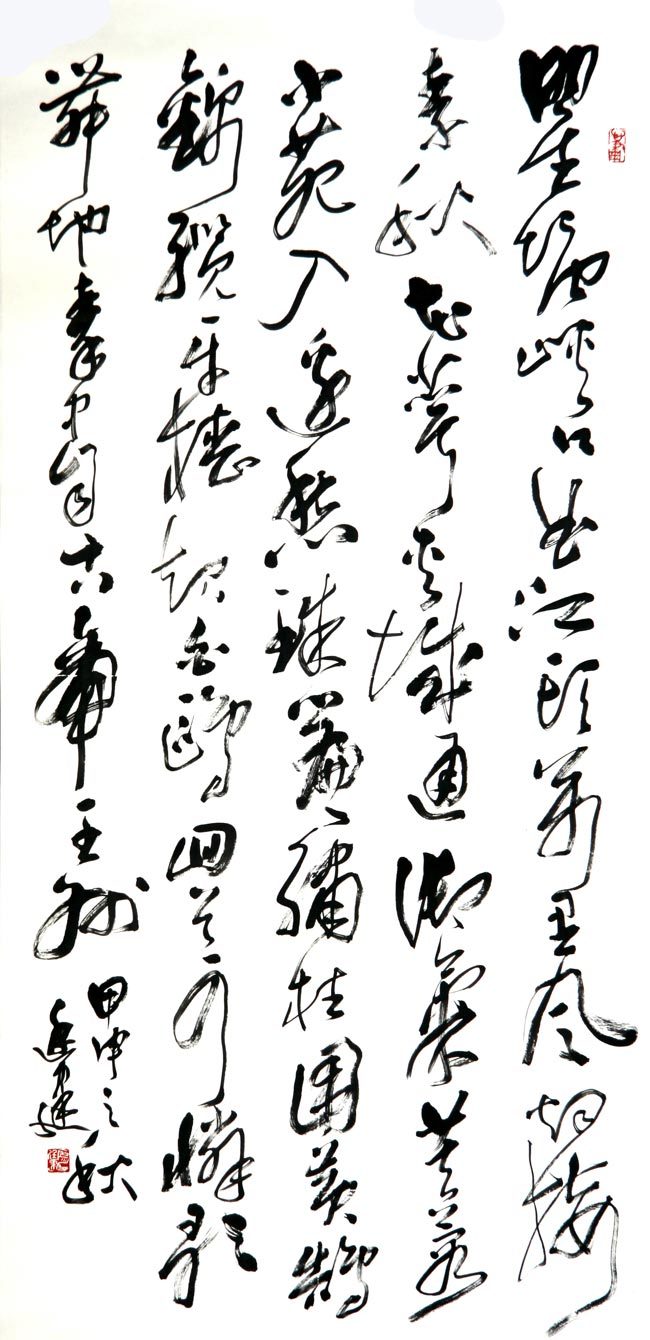 瞿塘峽口曲江頭萬里風烟接
素秋花萼夾城通御氣芙蓉
小苑入邊愁珠簾繡柱圍黃鵠
錦纜牙檣起白鷗回首可憐歌
舞地秦中自古帝王州
甲申之秋